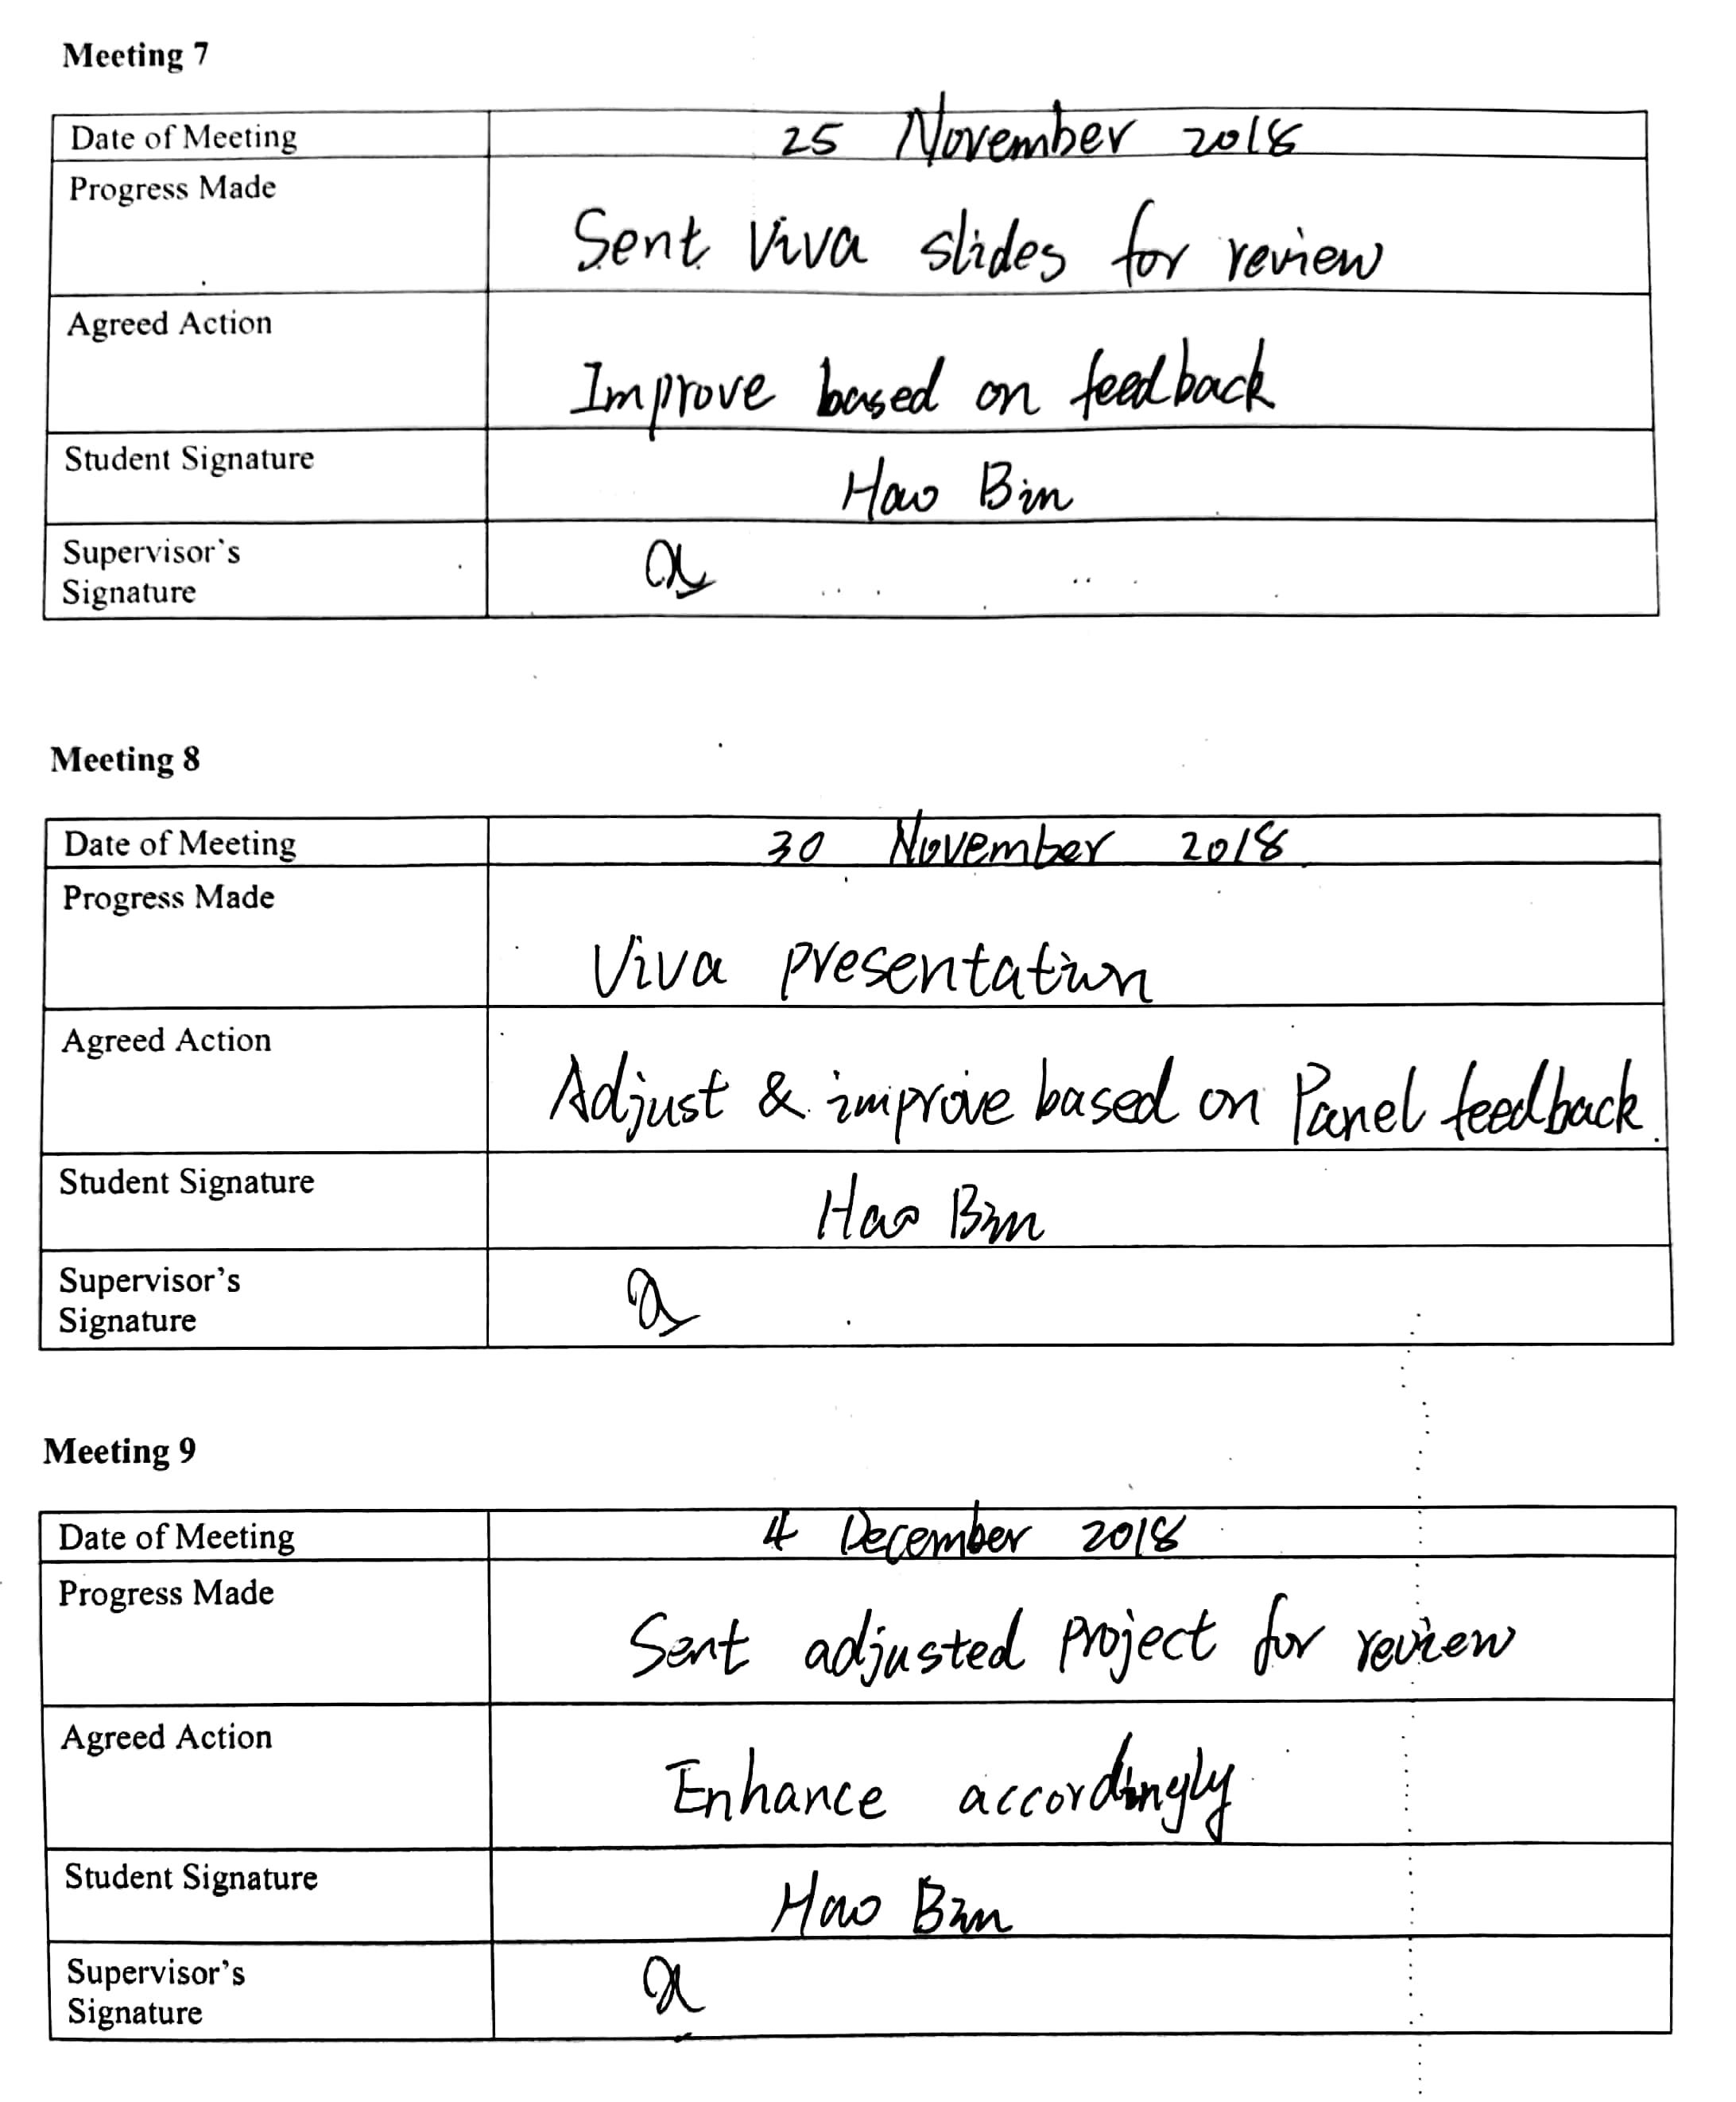 Meeting 7
Date of Meeting 25 November 2018
Progress Made
Sent Viva slides for review
Agreed Action
Improve based on feedback
Student Signature
Hao Bin
Supervisor's
Signature
Meeting 8
Date of Meeting 30 November 2018
Progress Made
Viva presentation
Agreed Action
Adjust & improve based on Panel feedback.
Student Signature
Hao Bin
Supervisor's
Signature
Meeting 9
Date of Meeting 4 December 2018
Progress Made
Sent adjusted project for review
Agreed Action
Enhance accordingly
Student Signature
Hao Bin
Supervisor's
Signature